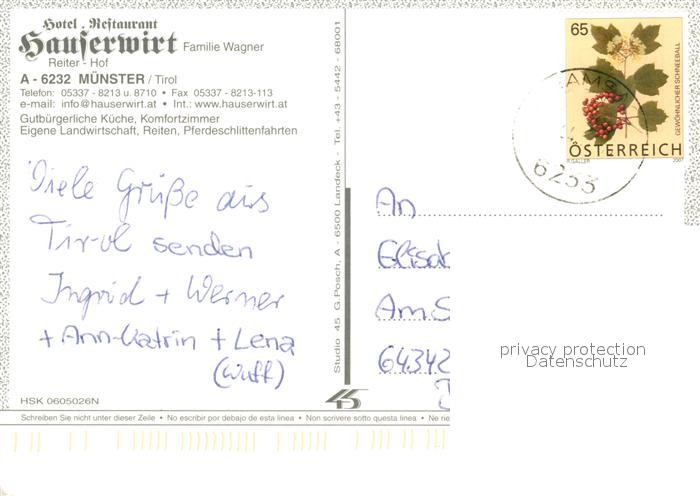 Hotel . Restaurant
Hauserwirt Familie Wagner
Reiter - Hof
A - 6232 MÜNSTER / Tirol
Telefon: 05337 - 8213 u. 8710 • Fax 05337 - 8213-113
e-mail: info@hauserwirt.at • Int.: www.hauserwirt.at
Gutbürgerliche Küche, Komfortzimmer
Eigene Landwirtschaft, Reiten, Pferdeschlittenfahrten
Viele Grüße aus
Tirol senden
Ingrid + Werner
+ Ann-Katrin + Lena
(Wuff)
HSK 0605026N
Schreiben Sie nicht unter dieser Zeile • No escribir por debajo de esta linea • Non scrivere sotto questa linea • Ne
Studio 45 G.Posch, A - 6500 Landeck - Tel. +43 - 5442 - 68001
45
65
GEWÖHNLICHER SCHNEEBALL
ÖSTERREICH
R.GALLER 2007
6233
An
Am S
64342
privacy protection
Datenschutz